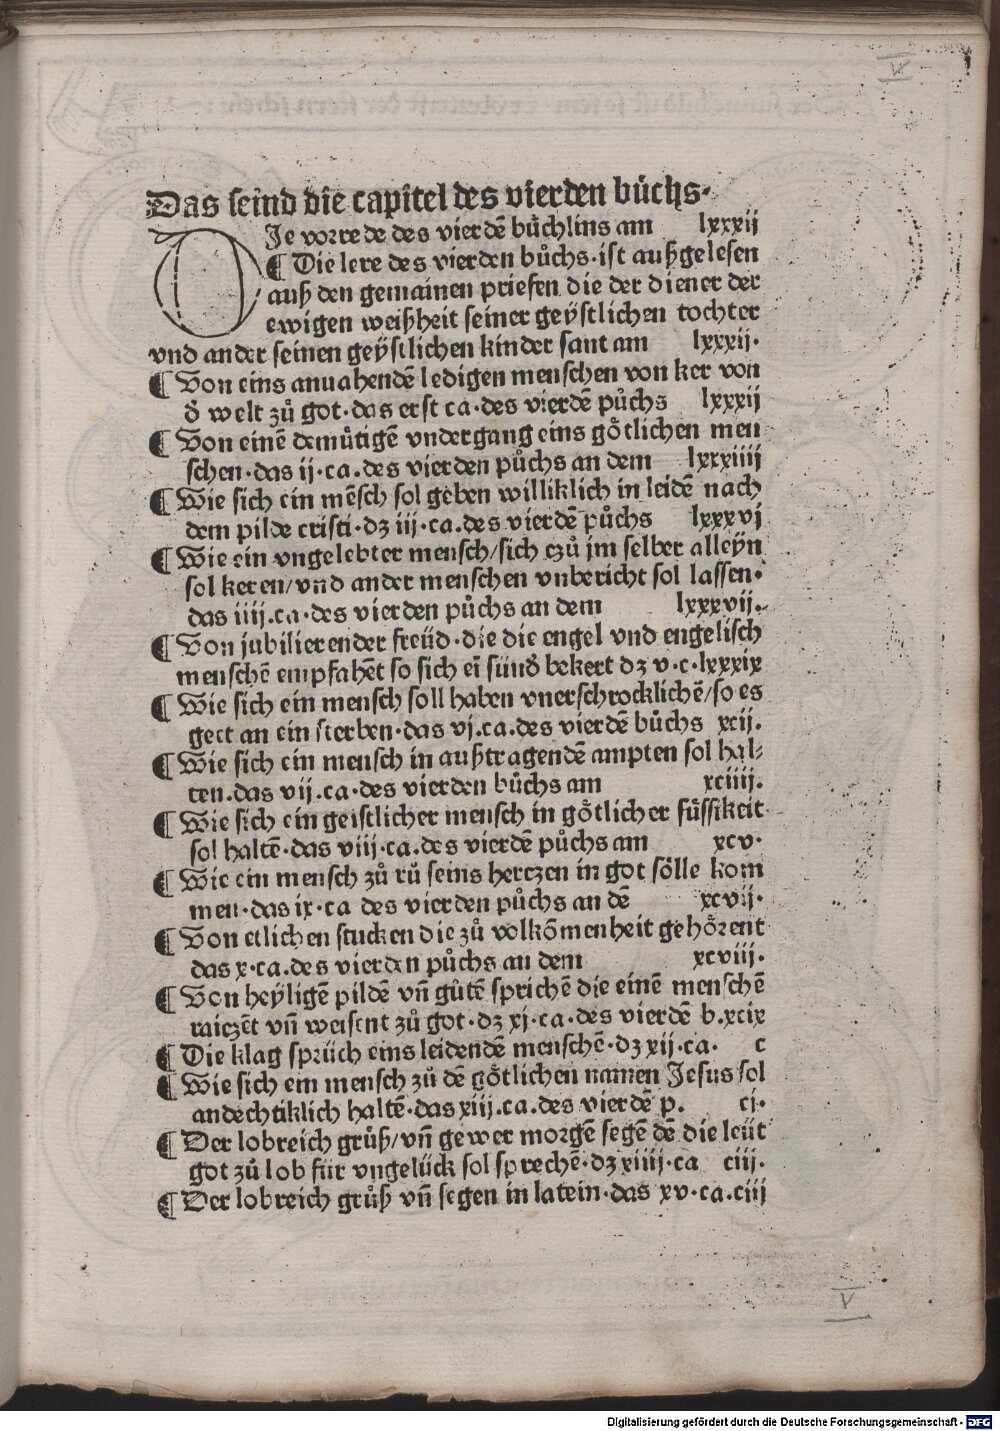 V
Das seind die capitel des vierden bůchs·
DJe vorrede des vierdē bůchlins am lxxxij
¶ Die lere des vierden bůchs·ist außgelesen
auß den gemainen priefen die der diener der
ewigen weißheit seiner geÿstlichen tochter
vnd ander seinen geÿstlichen kinder sant am lxxxij·
¶ Von eins anuahendē ledigen menschen von ker von
d̓ welt zů got·das erst ca·des vierdē půchs lxxxij
¶ Von einē demůtigē vndergang eins gőtlichen men
schen·das ij·ca.des vierden půchs an dem lxxxiiij
¶ Wie sich ein mēsch sol geben williklich in leidē nach
dem pilde cristi·dz iij·ca.des vierdē půchs lxxxvj
¶ Wie ein vngelebter mensch/sich czů jm selber alleÿn
sol keren/vnd ander menschen vnbericht sol lassen·
das iiij.ca·des vierden půchs an dem lxxxvij.
¶ Von jubilierender freüd·die die engel vnd engelisch
menschē empfahēt so sich eī sünd̓ bekert dz v·c·lxxxix
¶ Wie sich ein mensch soll haben vnerschrocklichē/so es
geet an ein sterben·das vj.ca.des vierdē bůchs xcij.
¶ Wie sich ein mensch in außtragendē ampten sol hal⸗
ten.das vij.ca·des vierden bůchs am xciiij.
¶ Wie sich ein geistlicher mensch in gőtlicher süssikeit
sol haltē·das viij·ca.des vierdē půchs am xcv·
¶ Wie ein mensch zů rů seins herczen in got sőlle kom
men·das ix·ca des vierden půchs an dē xcvij·
¶ Von etlichen stucken die zů volkōmenheit gehőrent
das x·ca.des vierden půchs an dem xcviij·
¶ Von heÿligē pildē vn̄ gůtē sprichē die einē menschē
raiczēt vn̄ weisent zů got·dz xj·ca·des vierdē b.xcix
¶ Die klag sprüch eins leidendē menschē·dz xij·ca· c
¶ Wie sich ein mensch zů dē gőtlichen namen Jesus sol
andechtiklich haltē·das xiij.ca.des vierdē p. cj·
¶ Der lobreich grůß/vn̄ gewer morgē segē dē die leüt
got zů lob für vngelück sol sprechē·dz xiiij·ca ciij.
¶ Der lobreich grůß vn̄ segen in latein·das xv·ca.ciij
V
Digitalisierung gefördert durch die Deutsche Forschungsgemeinschaft - DFG